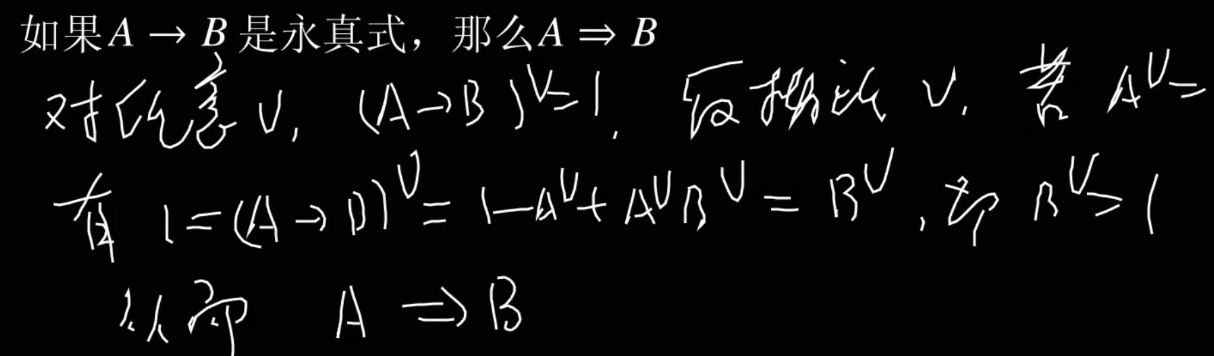 如果A → B 是永真式，那么A ⇒ B
对任意 v, (A→B)^v=1. 反 v, 若 A^v=
有 1=(A→B)^v=1-A^v+A^vB^v=B^v, 即 B^v=1
从而 A ⇒ B